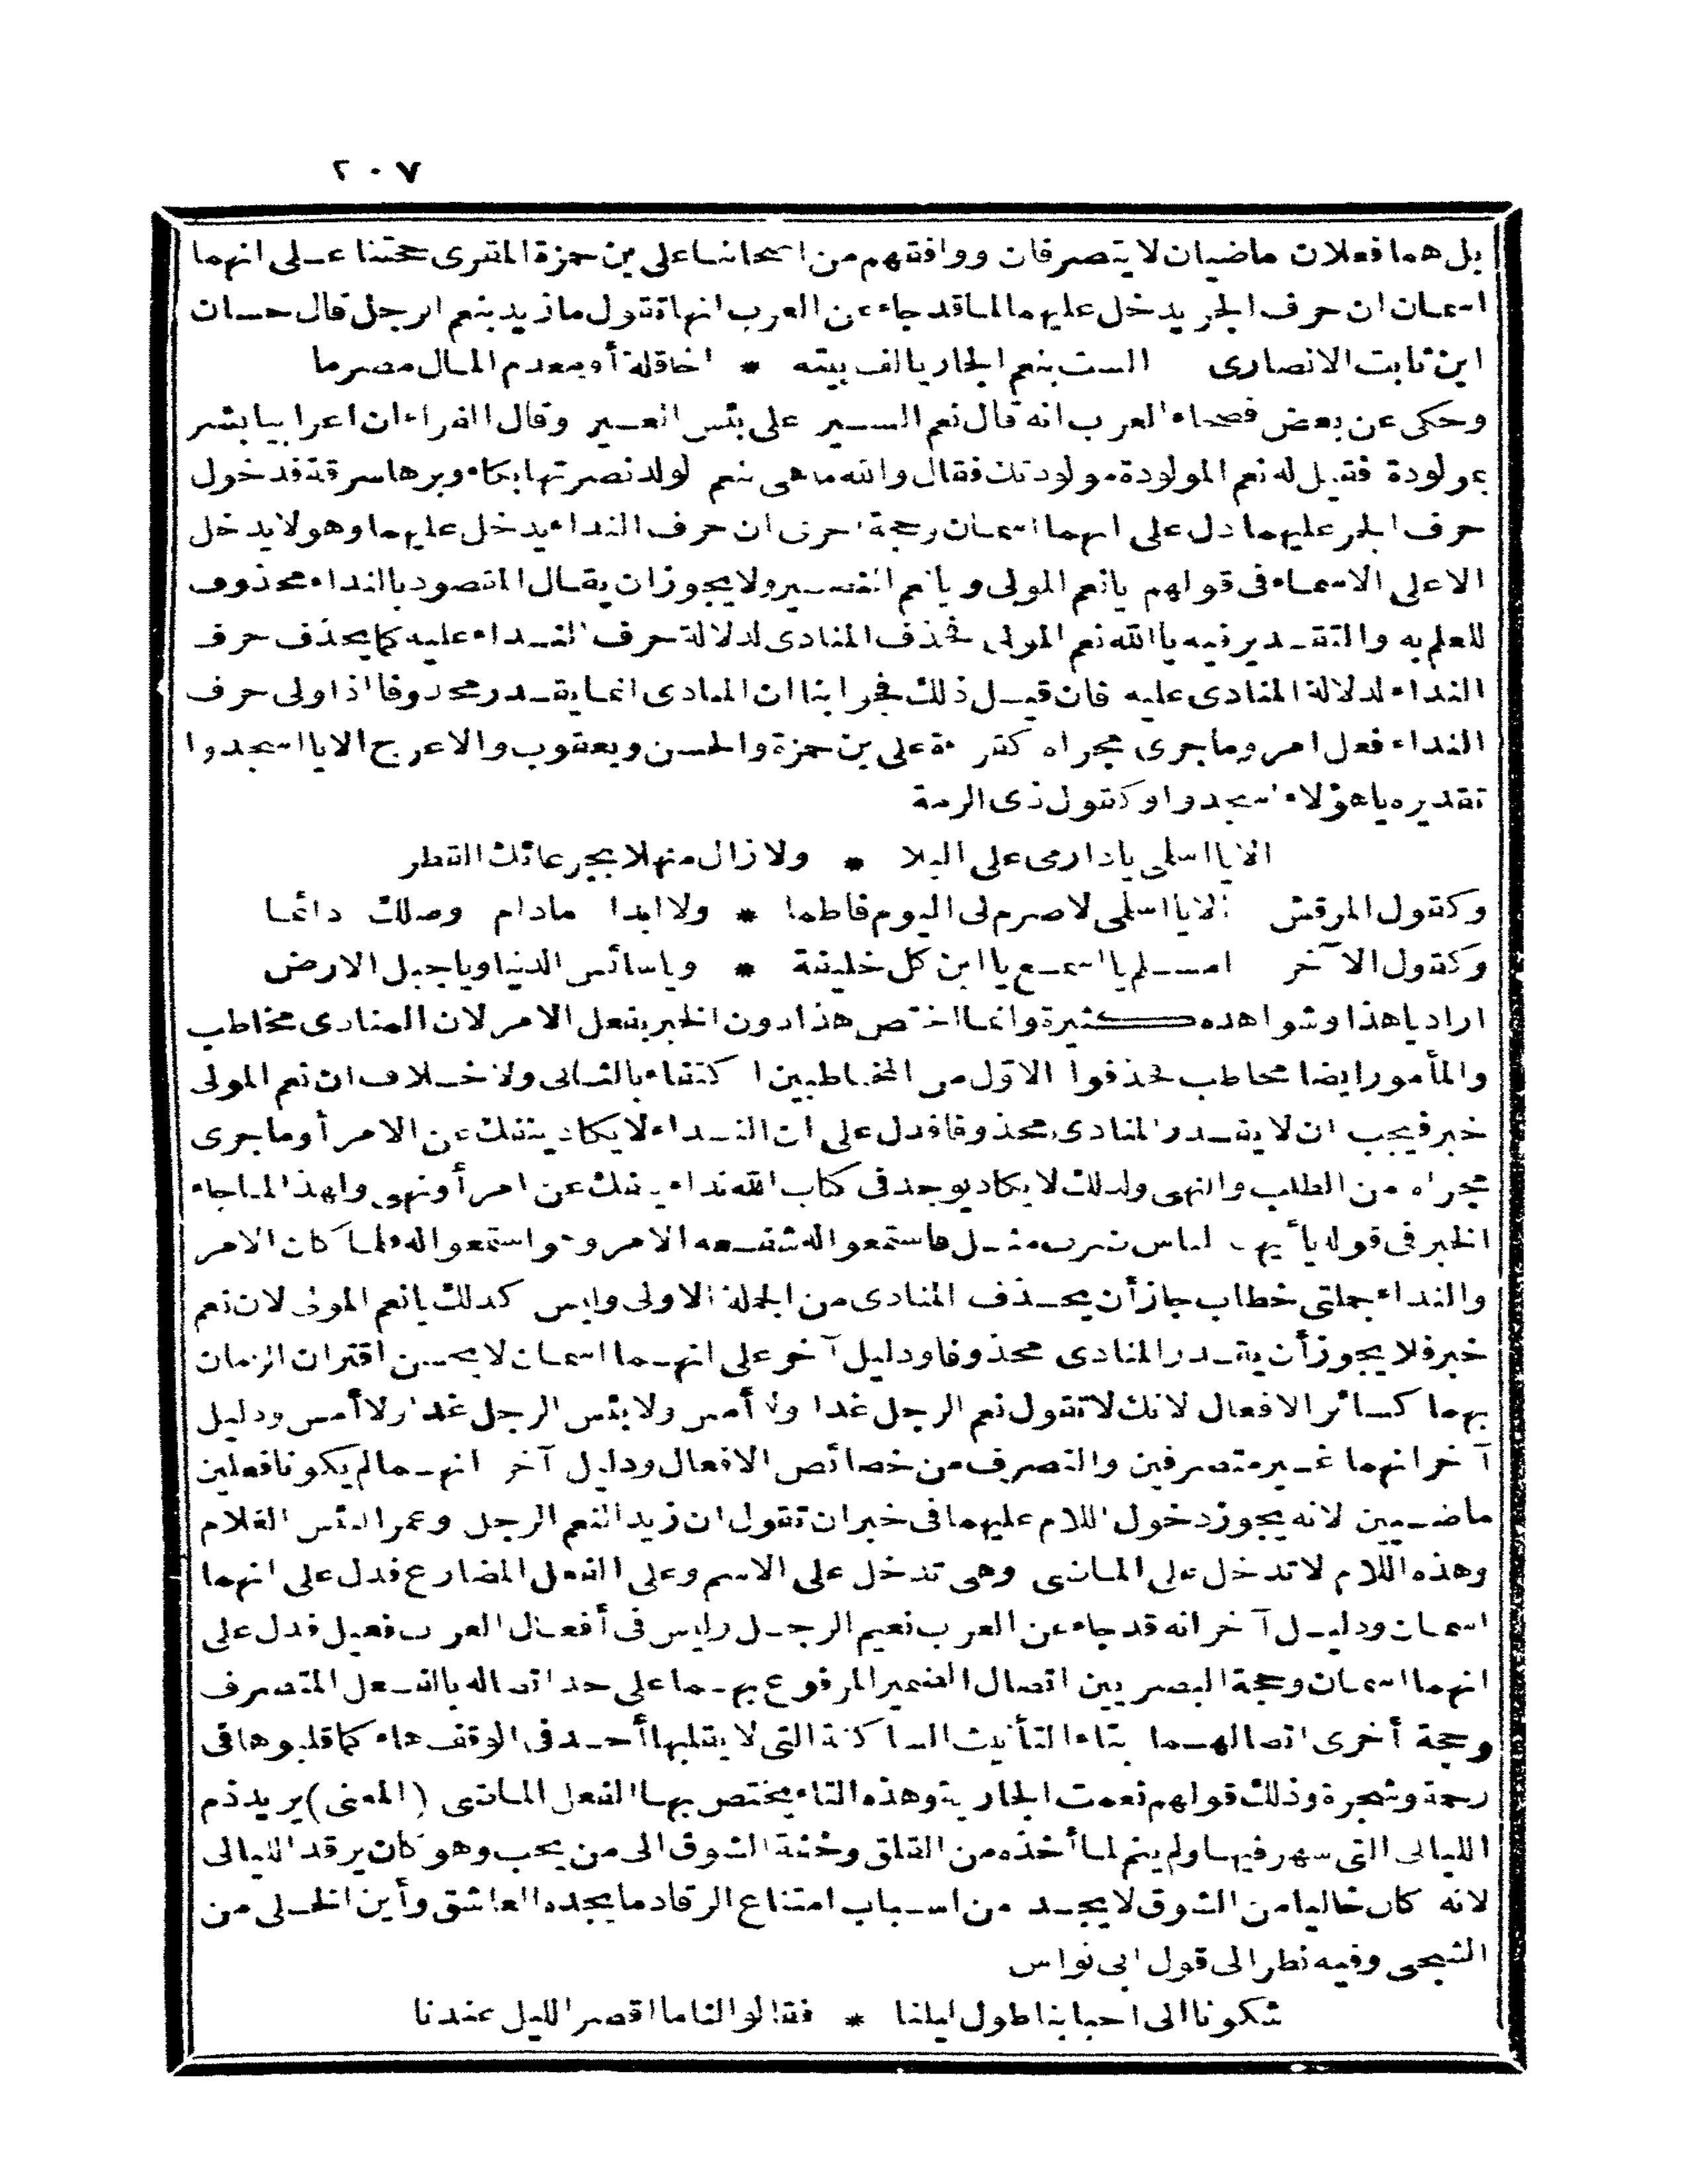 ٢٠٧
بل هما فعلان ماضيان لا يتصرفان ووافقهم من اصحابنا على بن حمزة المقرى حجتنا على انهما
اسمان ان حرف الجر يدخل عليهما لما قد جاء عن العرب انها تقول ما زيد بنعم الرجل قال حسان
ابن ثابت الانصارى الست بنعم الجار يالف بيته * اخا قلة أو معدم المال مصرما
وحكى عن بعض فصحاء العرب انه قال نعم السير على بئس العير وقال الفراء ان اعرابيا بشر
بمولودة فقيل له نعم المولودة مولودتك فقال والله ما هى بنعم الولد نصرتها بكاء وبرها سرقة فدخول
حرف الجر عليهما دل على انهما اسمان وحجة اخرى ان حرف النداء يدخل عليهما وهو لا يدخل
الا على الاسماء فى قولهم يا نعم المولى ويا نعم النصير ولا يجوز ان يقال المقصود بالنداء محذوف
للعلم به والتقدير فيه يا الله نعم المولى فحذف المنادى لدلالة حرف النداء عليه كما يحذف حرف
النداء لدلالة المنادى عليه فان قيل ذلك فجوابنا ان المنادى انما يقدر محذوفا اذا ولى حرف
النداء فعل امر وما جرى مجراه كقراءة على بن حمزة والحسن ويعقوب والاعرج الا يا اسجدوا
تقديره يا هؤلاء اسجدوا وكقول ذى الرمة
الا يا اسلمى يا دارمى على البلا * ولا زال منهلا بجرعائك القطر
وكقول المرقش الا يا اسلمى لا صرم لى اليوم فاطما * ولا ابدا مادام وصلك دائما
وكقول الآخر امسلم يا اسمع يا ابن كل خليفة * ويا سائس الدنيا ويا جبل الارض
اراد يا هذا وشواهده كثيرة وانما اختص هذا دون الخبر بفعل الامر لان المنادى مخاطب
والمأمور ايضا مخاطب فحذفوا الاوّل من المخاطبين اكتفاء بالثانى ولا خلاف ان نعم المولى
خبر فيجب ان لا يقدر المنادى محذوفا فدل على ان النداء لا يكاد ينفك عن الامر أو ما جرى
مجراه من الطلب والنهى ولذلك لا يكاد يوجد فى كتاب الله نداء ينفك عن امر أو نهى ولهذا لما جاء
الخبر فى قوله يا أيها الناس ضرب مثل فاستمعوا له شفعه الامر وهو استمعوا له فلما كان الامر
والنداء جملتى خطاب جاز أن يحذف المنادى من الجملة الاولى وليس كذلك يا نعم المولى لان نعم
خبر فلا يجوز أن يقدر المنادى محذوفا ودليل آخر على انهما اسمان لا يحسن اقتران الزمان
بهما كسائر الافعال لانك لا تقول نعم الرجل غدا ولا أمس ولا بئس الرجل غدا ولا أمس ودليل
آخر انهما غير متصرفين والتصرف من خصائص الافعال ودليل آخر انهما لم يكونا فعلين
ماضيين لانه يجوز دخول اللام عليهما فى خبر ان تقول ان زيدا لنعم الرجل وعمرا لبئس الغلام
وهذه اللام لا تدخل على الماضى وهى تدخل على الاسم وعلى الفعل المضارع فدل على انهما
اسمان ودليل آخر انه قد جاء عن العرب نعيم الرجل وليس فى أفعال العرب فعيل فدل على
انهما اسمان وحجة البصريين اتصال الضمير المرفوع بهما على حد اتصاله بالفعل المتصرف
وحجة أخرى اتصالهما بتاء التأنيث الساكنة التى لا يقلبها أحد فى الوقف هاء كما قلبوها فى
رحمة وشجرة وذلك قولهم نعمت الجارية وهذه التاء يختص بها الفعل الماضى (المعنى) يريد ذم
الليالى التى سهر فيها ولم ينم لما أخذه من القلق وخفة الشوق الى من يحب وهو كان يرقد الليالى
لانه كان خاليا من الشوق لا يجد من اسباب امتناع الرقاد ما يجده العاشق وأين الخلى من
الشجى وفيه نظر الى قول ابى نواس
شكونا الى احبابنا طول ليلنا * فقالوا لنا ما اقصر الليل عندنا